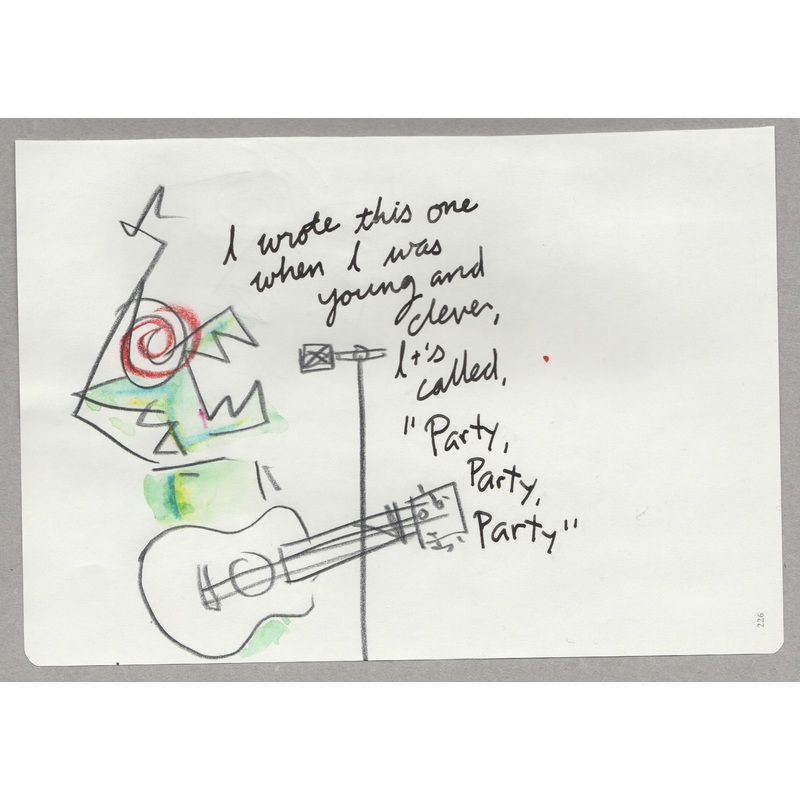 I wrote this one
when I was
young and
clever,
It's
called,
"Party,
Party,
Party"
226